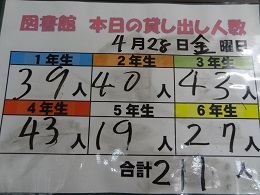 図書館 本日の貸し出し人数
4月28日金曜日
1年生 2年生 3年生
39人 40人 43人
4年生 5年生 6年生
43人 19人 27人
合計211人